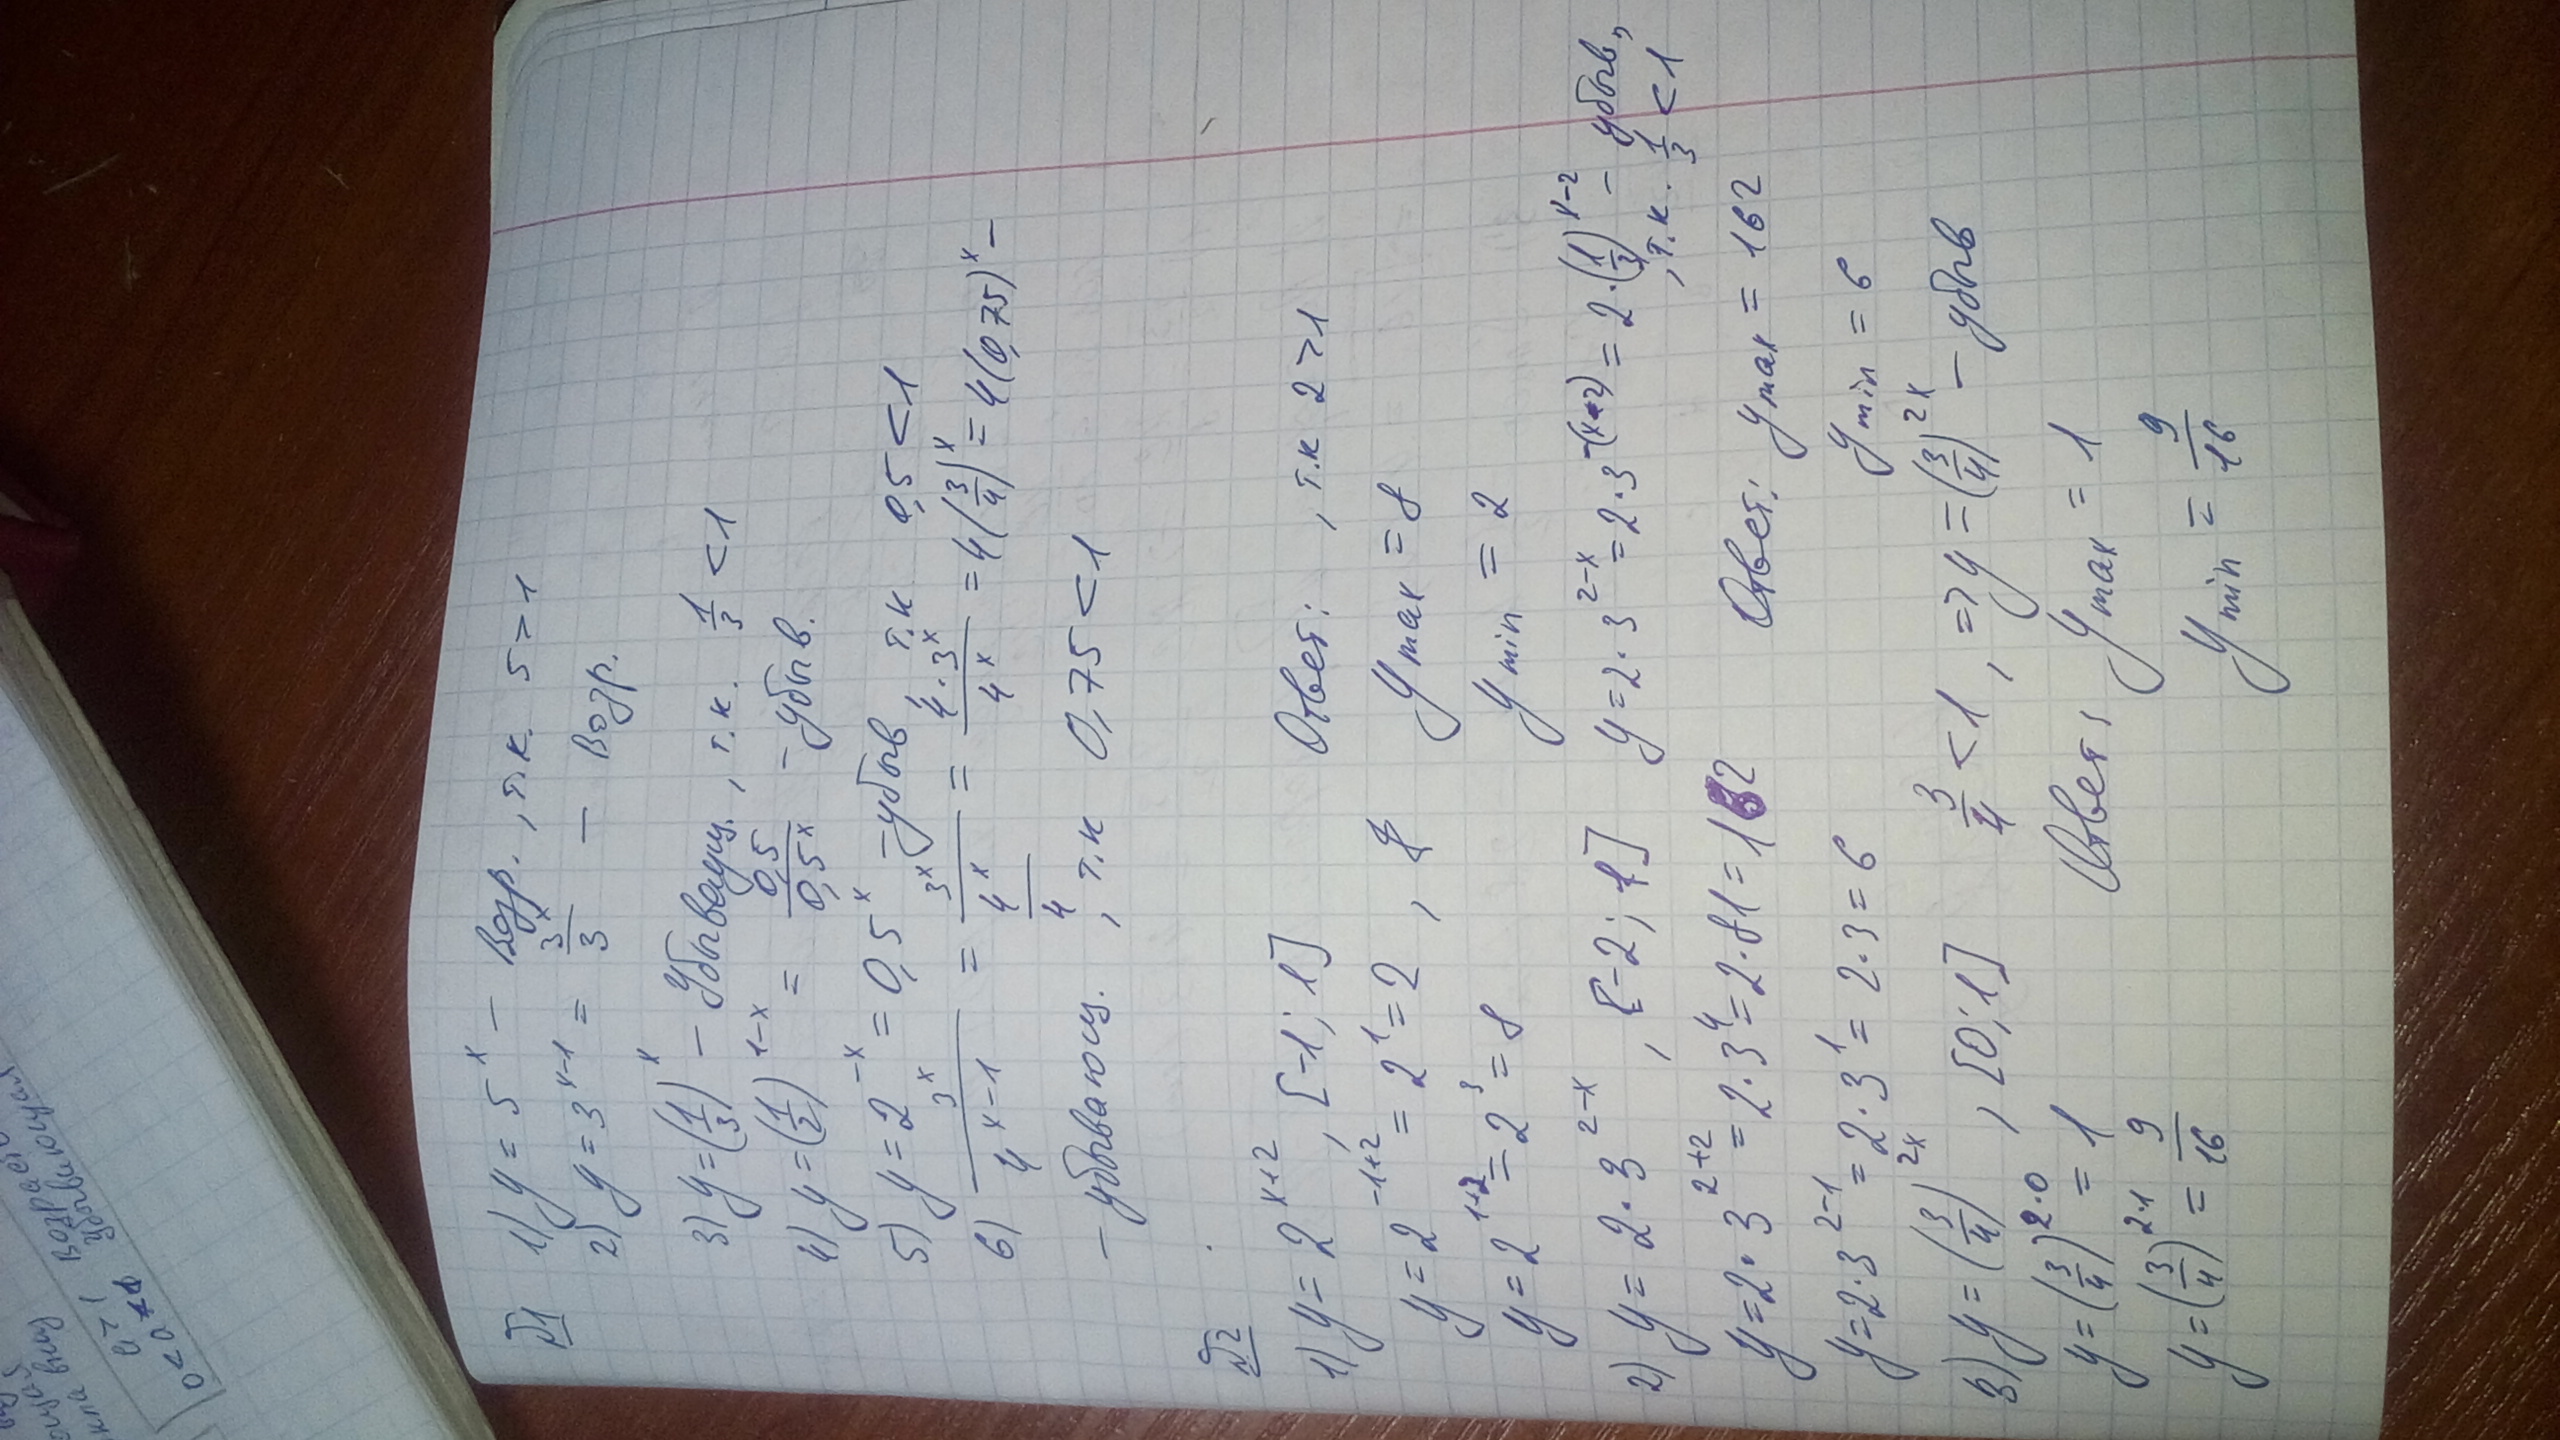 №1
1) y = 5^x – Возр., т.к. 5 > 1
2) y = 3^{x-1} = \frac{3^x}{3} – Возр.
3) y = (\frac{1}{3})^x – Убывающ., т.к. \frac{1}{3} < 1
4) y = (\frac{1}{2})^{1-x} = \frac{0,5}{0,5^x} – убыв.
5) y = 2^{-x} = 0,5^x – убыв т.к 0,5 < 1
6) \frac{3^x}{4^{x-1}} = \frac{3^x}{\frac{4^x}{4}} = \frac{4·3^x}{4^x} = 4(\frac{3}{4})^x = 4(0,75)^x –
– убывающ., т.к 0,75 < 1
№2
1) y = 2^{x+2}, [-1; 1] Ответ: , т.к 2 > 1
y = 2^{-1+2} = 2^1 = 2 , y_{max} = 8
y = 2^{1+2} = 2^3 = 8 y_{min} = 2
2) y = 2·3^{2-x}, [-2; 1] y = 2·3^{2-x} = 2·3^{-(x-2)} = 2·(\frac{1}{3})^{x-2} – убыв,
, т.к. \frac{1}{3} < 1
y = 2·3^{2+2} = 2·3^4 = 2·81 = 162 Ответ: y_{max} = 162
y = 2·3^{2-1} = 2·3^1 = 2·3 = 6 y_{min} = 6
3) y = (\frac{3}{4})^{2x}, [0; 1] \frac{3}{4} < 1, => y = (\frac{3}{4})^{2x} – убыв
y = (\frac{3}{4})^{2·0} = 1 Ответ: y_{max} = 1
y = (\frac{3}{4})^{2·1} = \frac{9}{16} y_{min} = \frac{9}{16}